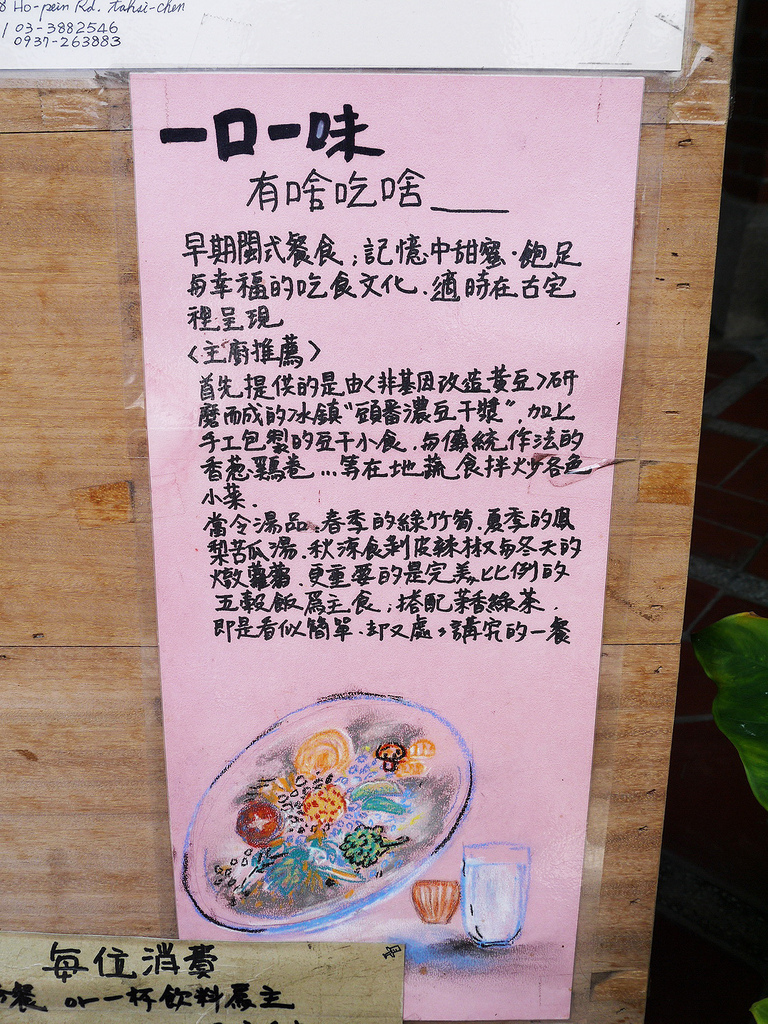 8 Ho-pein Rd. tahsi-chen
03-3882546
0937-263883
一口一味
有啥吃啥____
早期閩式餐食；記憶中甜蜜．飽足
與幸福的吃食文化．適時在古宅
裡呈現
〈主廚推薦〉
首先提供的是由〈非基因改造黃豆〉研
磨而成的冰鎮"頭番濃豆干漿"，加上
手工包製的豆干小食．與傳統作法的
香蔥鷄卷…等在地蔬食拌炒各色
小菜．
當令湯品．春季的綠竹筍．夏季的鳳
梨苦瓜湯．秋涼食剝皮辣椒與冬天的
燉蘿蔔．更重要的是完美比例的
五穀飯爲主食；搭配茉香綠茶．
即是看似簡單．却又處々講究的一餐
每位消費
餐 or 一杯飲料爲主